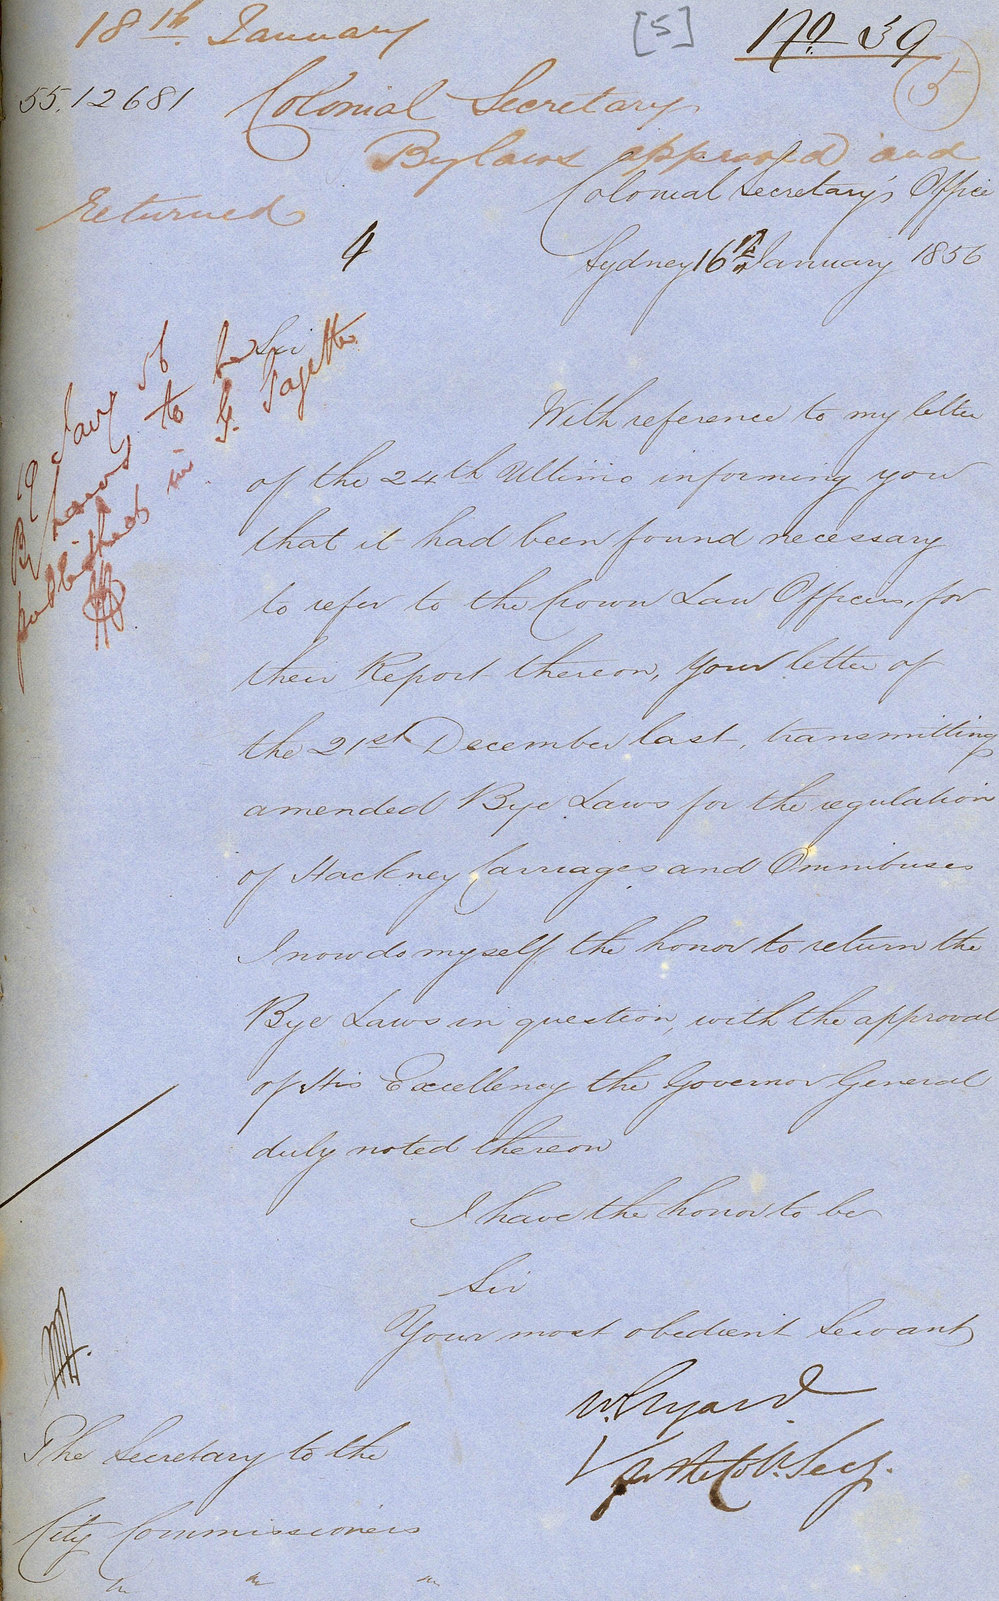 18th. January
[5]
No 39
5
55.12681
Colonial Secretary
Bylaws approved and
Returned
Colonial Secretary's Office
4
Sydney 16th January 1856
19 Jany 56
By Laws to be
published in G. Gazette
Sir
With reference to my letter
of the 24th Ultimo informing you
that it had been found necessary
to refer to the Crown Law Officers, for
their Report thereon, your letter of
the 21st December last, transmitting
amended Bye Laws for the regulation
of Hackney Carriages and Omnibuses
I now do myself the honor to return the
Bye Laws in question, with the approval
of His Excellency the Governor General
duly noted thereon
I have the honor to be
Sir
Your most obedient Servant
W. Elyard
for the Col. Secy.
The Secretary to the
City Commissioners
" " "